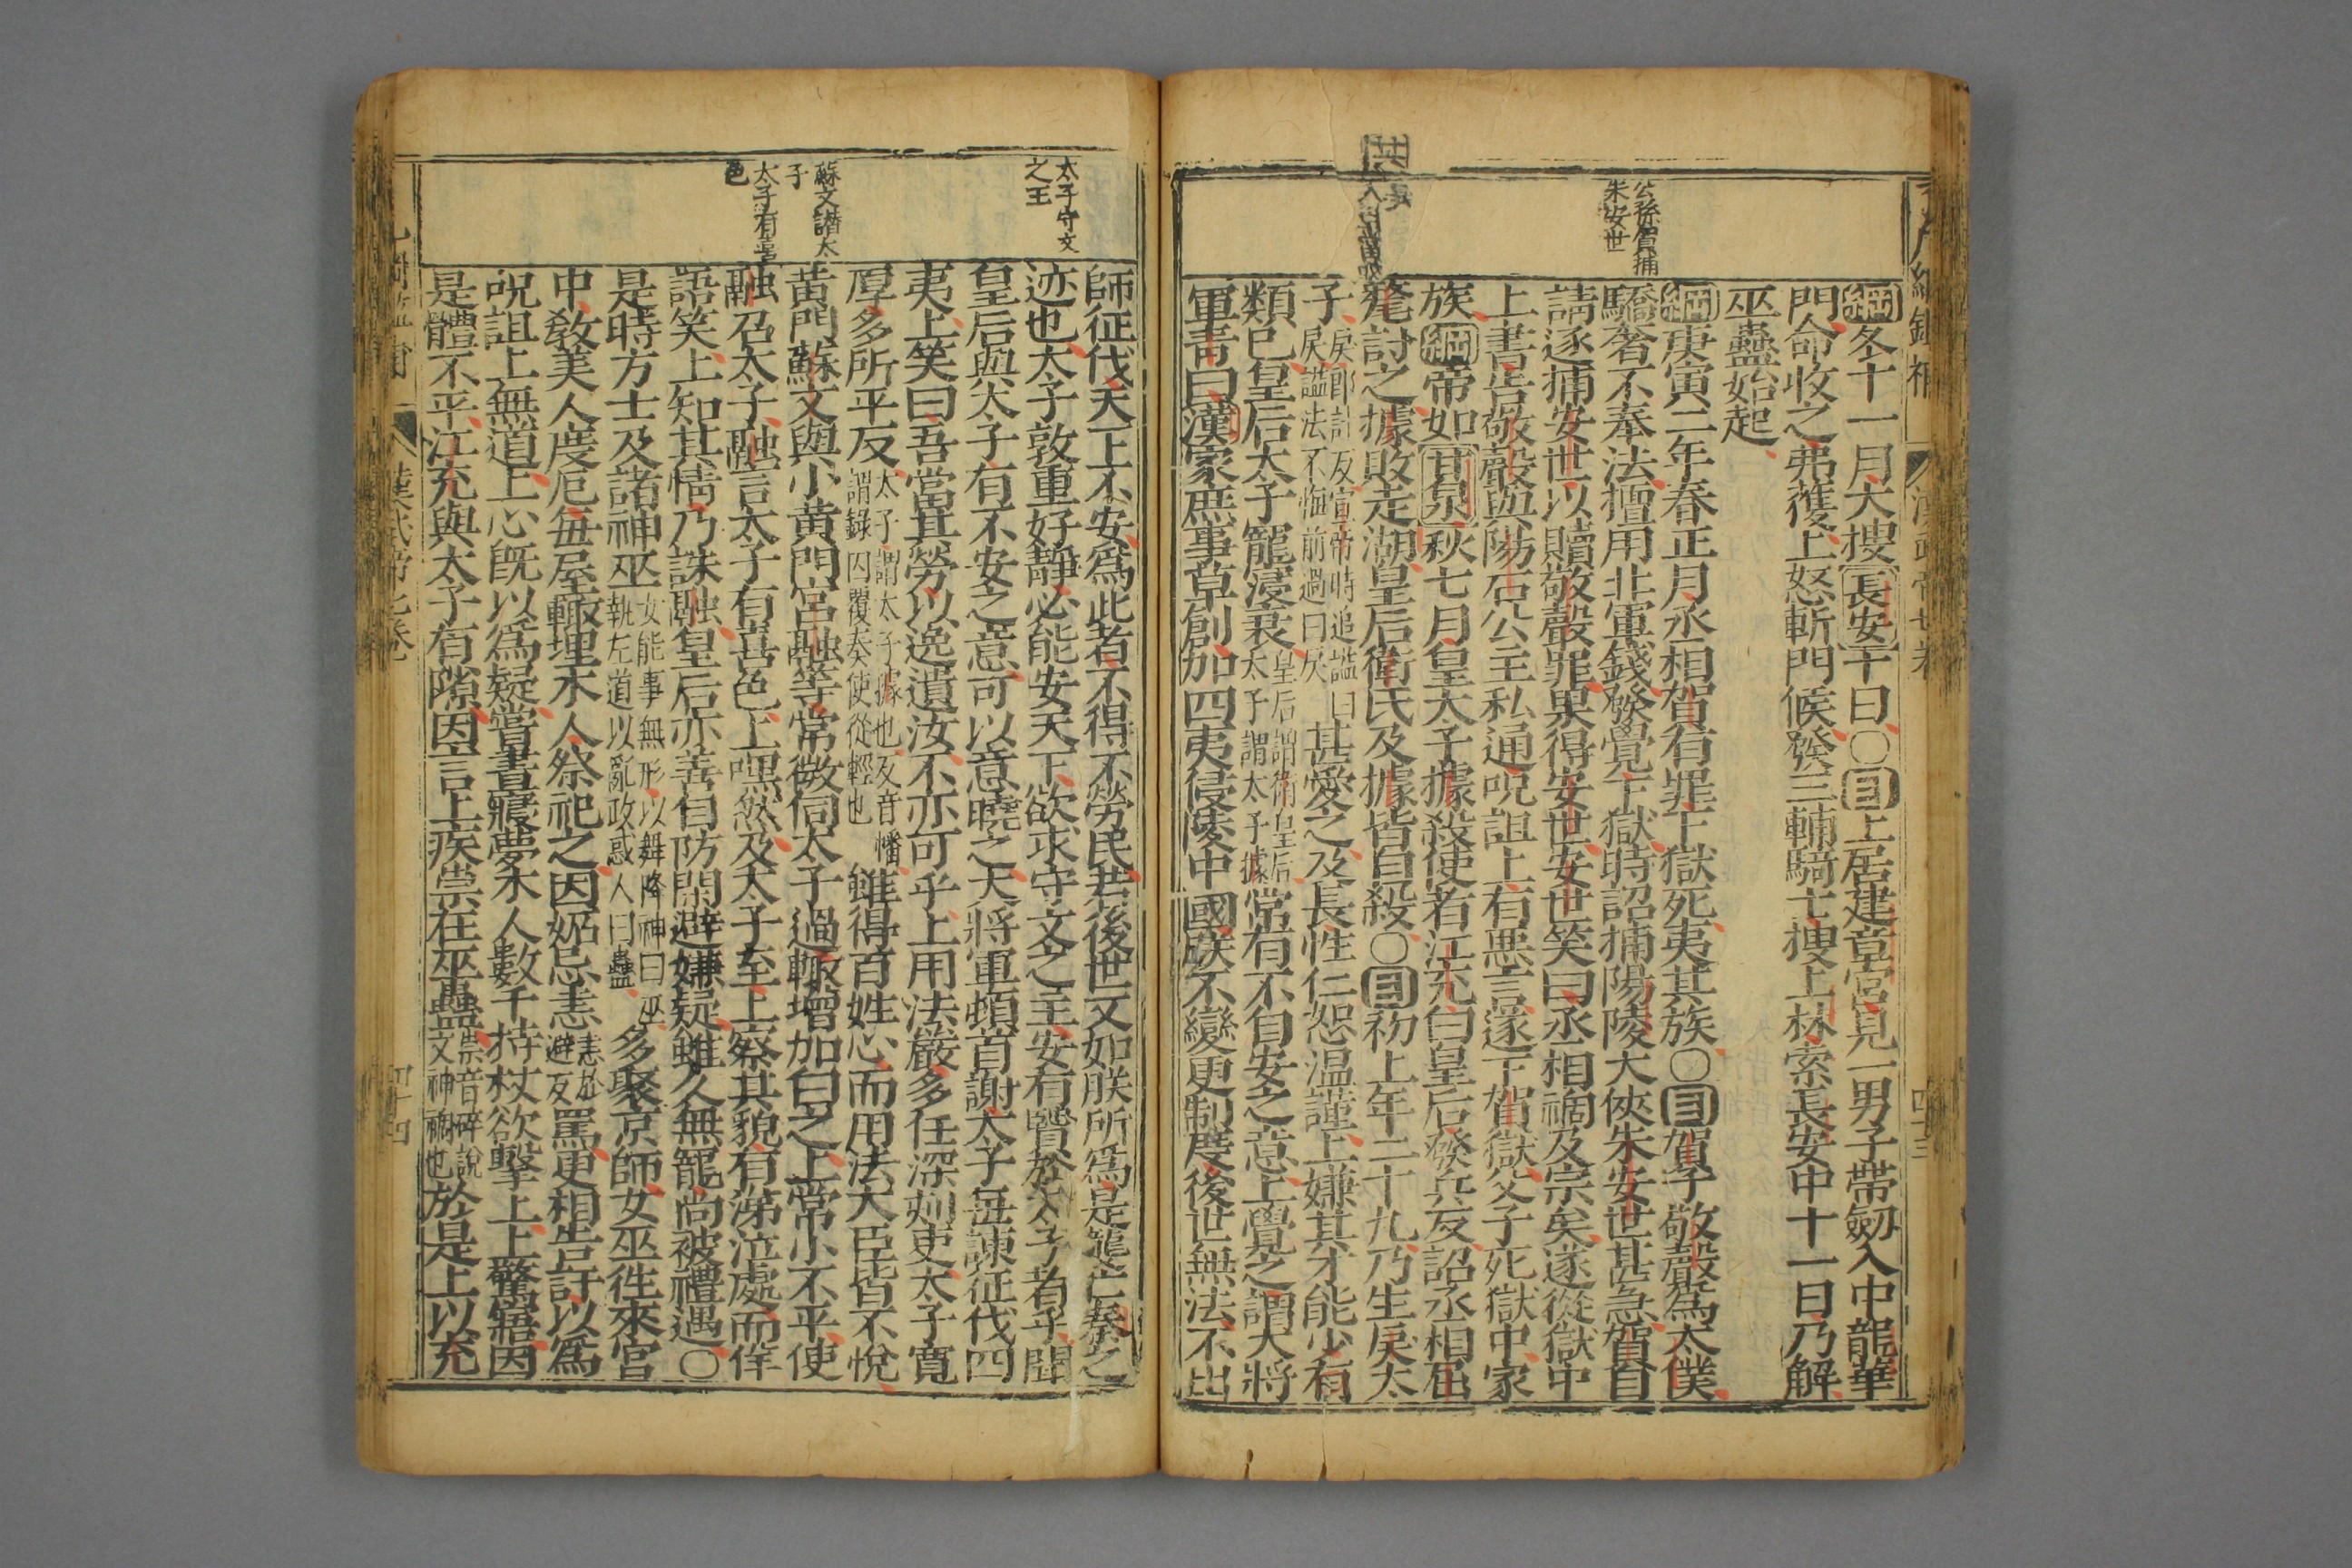 公孫賀捕
朱安世
綱冬十一月大搜長安十日〇目上居建章宮見一男子帶劒入中龍華
門命收之弗獲上怒斬門候發三輔騎士搜上林索長安中十一日乃解
巫蠱始起
綱庚寅二年春正月丞相賀有罪下獄死夷其族〇目賀子敬聲爲太僕
驕奢不奉法擅用北軍錢發覺下獄時詔捕陽陵大俠朱安世甚急賀自
請逐捕安世以贖敬聲罪果得安世安世笑曰丞相禍及宗矣遂從獄中
上書告敬聲與陽石公主私通呪詛上有惡言遂下賀獄父子死獄中家
族綱帝如甘泉秋七月皇太子據殺使者江充白皇后發兵反詔丞相屈
氂討之據敗走湖皇后衛氏及據皆自殺〇目初上年二十九乃生戾太
子戾郎計反宣帝時追謚曰戾謚法不悔前過曰戾甚愛之及長性仁恕温謹上嫌其才能少不
類己皇后太子寵寖衰皇后謂衛皇后太子謂太子據常有不自安之意上覺之謂大將
軍青曰漢家庶事草創加四夷侵陵中國朕不變更制度後世無法不出
太子守文
之主
蘇文譖太
子
太子有喜
色
師征伐天下不安爲此者不得不勞民若後世又如朕所爲是襲亡秦之
迹也太子敦重好靜必能安天下欲求守文之主安有賢於太子者乎聞
皇后與太子有不安之意可以意曉之大將軍頓首謝太子每諫征伐四
夷上笑曰吾當其勞以逸遺汝不亦可乎上用法嚴多任深刻吏太子寬
厚多所平反太子謂太子據也反音幡謂錄囚覆奏使從輕也雖得百姓心而用法大臣皆不悅
黄門蘇文與小黄門宮融等常微伺太子過輒增加白之上常小不平使
融召太子融言太子有喜色上嘿然及太子至上察其貌有涕泣處而佯
語笑上知其情乃誅融皇后亦善自防閑避嫌疑雖久無寵尚被禮遇〇
是時方士及諸神巫女能事無形以舞降神曰巫執左道以亂政惑人曰蠱多聚京師女巫徃來宮
中敎美人度厄每屋輒埋木人祭祀之因妬忌恚恚於避反罵更相告訐以爲
呪詛上無道上心既以爲疑嘗晝寢夢木人數千持杖欲擊上上驚寤因
是體不平江充與太子有隙因言上疾祟在巫蠱祟音碎說文神禍也於是上以充